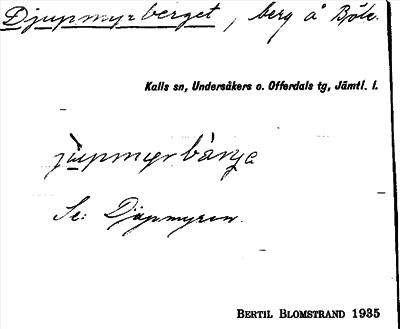 Djupmyrberget, berg å Böle.
Kalls sn, Undersåkers o. Offerdals tg, Jämtl. l.
jùpmyrbárʒe
Se: Djupmyren.
BERTIL BLOMSTRAND 1935